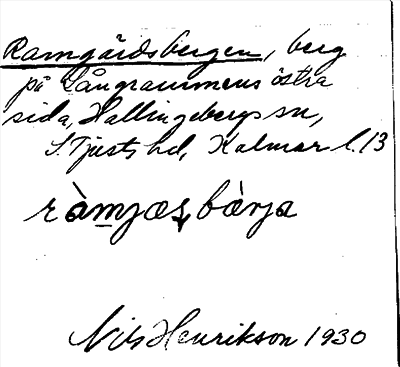 Ramgårdsbergen, berg
på Långrammens östra
sida, Hallingebergs sn,
S. Tjusts hd, Kalmar l. 13
ràmjas bàrja
Nils Henrikson 1930